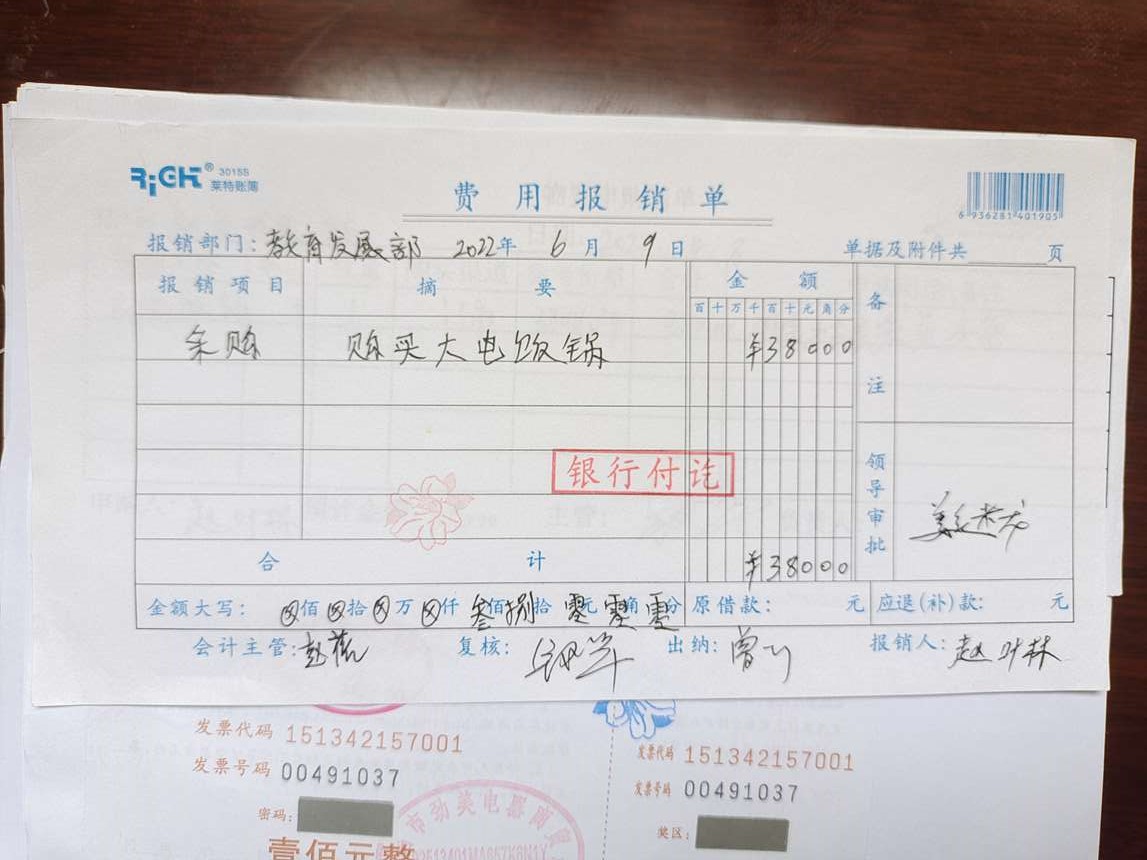 RiGHT® 3015S
莱特账簿
费用报销单
6 936281 401905
报销部门:教育发展部 2022年 6月 9日 单据及附件共 页
报销项目 摘要 金额 备注
百十万千百十元角分
采购 购买大电饭锅 ¥38000
银行付讫
领导审批
合计 ¥38000
金额大写: ⊗佰⊗拾⊗万⊗仟叁佰捌拾零元零角零分 原借款: 元 应退(补)款: 元
会计主管: 复核: 出纳:曾 报销人:赵叶林
发票代码 151342157001 发票代码 151342157001
发票号码 00491037 发票号码 00491037
密码: 奖区:
市劲美电器商
壹佰元整